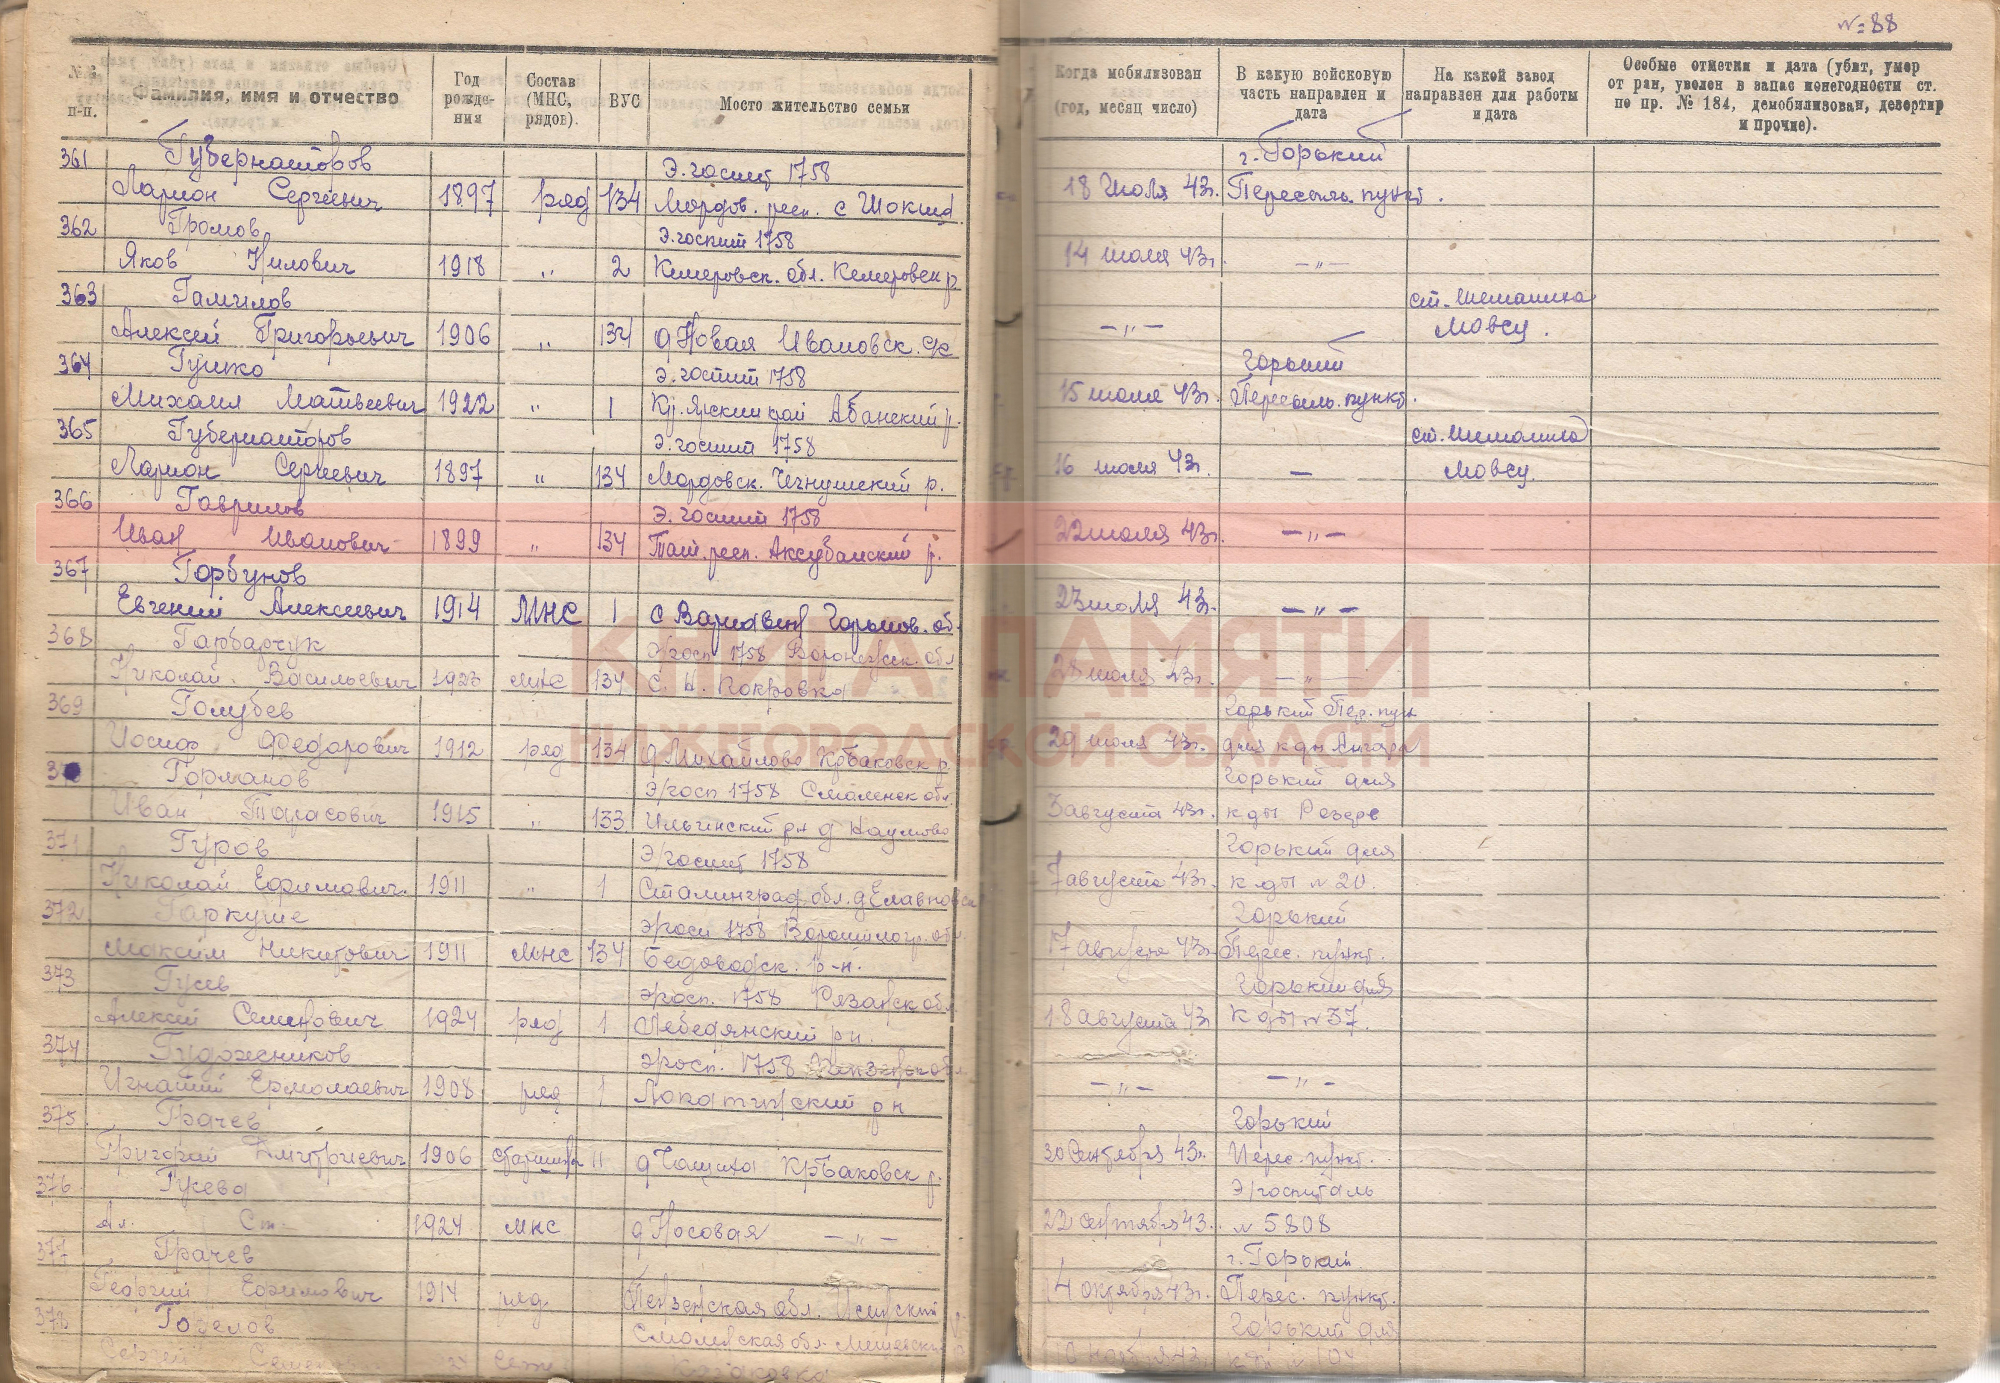 № 88
№№ п-п.
Фамилия, имя и отчество
Год рожде-ния
Состав (МНС, рядов).
ВУС
Место жительство семьи
Когда мобилизован (год, месяц число)
В какую войсковую часть направлен и дата
На какой завод направлен для работы и дата
Особые отметки и дата (убит, умер от ран, уволен в запас ионегодности ст. по пр. № 184, демобилизован, дезертир и прочие).
361 Губернаторов Э. госпит 1758 г. Горький
Ларион Сергеевич 1897 ряд 134 Мордов. респ. с Шокша 18 Июля 43г. Пересыль. пункт.
362 Громов Э. госпит 1758
Яков Нилович 1918 „ 2 Кемеровск. обл. Кемеровск р. 14 июля 43г. —„—
363 Гамилов ст. Шеманиха
Алексей Григорьевич 1906 „ 134 д Новая Ивановск. —„— Мовсу.
364 Гушко Э. госпит 1758 Горький
Михаил Матвеевич 1922 „ 1 Кр.Ярский край Абанский р. 15 июля 43г. Пересыль. пункт.
365 Губернаторов Э. госпит 1758 ст. Шеманиха
Ларион Сергеевич 1897 „ 134 Мордовск. р. 16 июля 43г. — Мовсу.
366 Гаврилов Э. госпит 1758
Иван Иванович 1899 „ 134 Тат. респ. Аксубаевский р. 22 июля 43г. —„—
367 Горбунов
Евгений Алексеевич 1914 МНС 1 с Варнавино Горьков. об. 23 июля 43г. —„—
368 Гарбарчук Э/госп 1758 Воронежск. обл
Николай Васильевич 1923 МНС 134 с. Н. Покровка 28 июля 43г. —„—
369 Голубев Горький Пер. пун
Иосиф Федорович 1912 ряд 134 д Михайлово Кр Баковск р. 29 июля 43г. для к дп Ангара
370 Горманов Э/госп 1758 Смоленск обл. Горький для
Иван Тарасович 1915 „ 133 Ильинский рн д Наумово 3 августа 43г. к дп Резерв
371 Гуров Э/госпит 1758 Горький для
Николай Ефимович. 1911 „ 1 Сталинград. обл. 7 августа 43г. к дп № 20.
372 Гаркуше Э/госп 1758 Ворошилогр. об Горький
Максим Никитович 1911 МНС 134 Беловодск. р-н. 17 августа 43г. Перес. пункт.
373 Гусев Э/госп. 1758 Рязанск обл. Горький для
Алексей Семенович 1924 ряд 1 Лебедянский рн. 18 августа 43 к дп № 37.
374 Гудожсников Э/госп. 1758
Игнатий Ермолаевич 1908 ряд 1 рн —„— —„—
375 Грачев Горький
Григорий Дмитриевич 1906 старшина 11 д Чащиха Кр Баковск р. 30 Сентября 43г. Перес. пункт.
376 Гусева Э/госпиталь
Ал. Ст. 1924 МНС д Носовая —„— 22 сентября 43. № 5808
377 Грачев г. Горький
Георгий Ефимович 1914 ряд. Пензенская обл. 4 октября 43г. Перес. пункт.
378 Смоленская обл. Горький для
Сергей 43г.
КНИГА ПАМЯТИ
НИЖЕГОРОДСКОЙ ОБЛАСТИ